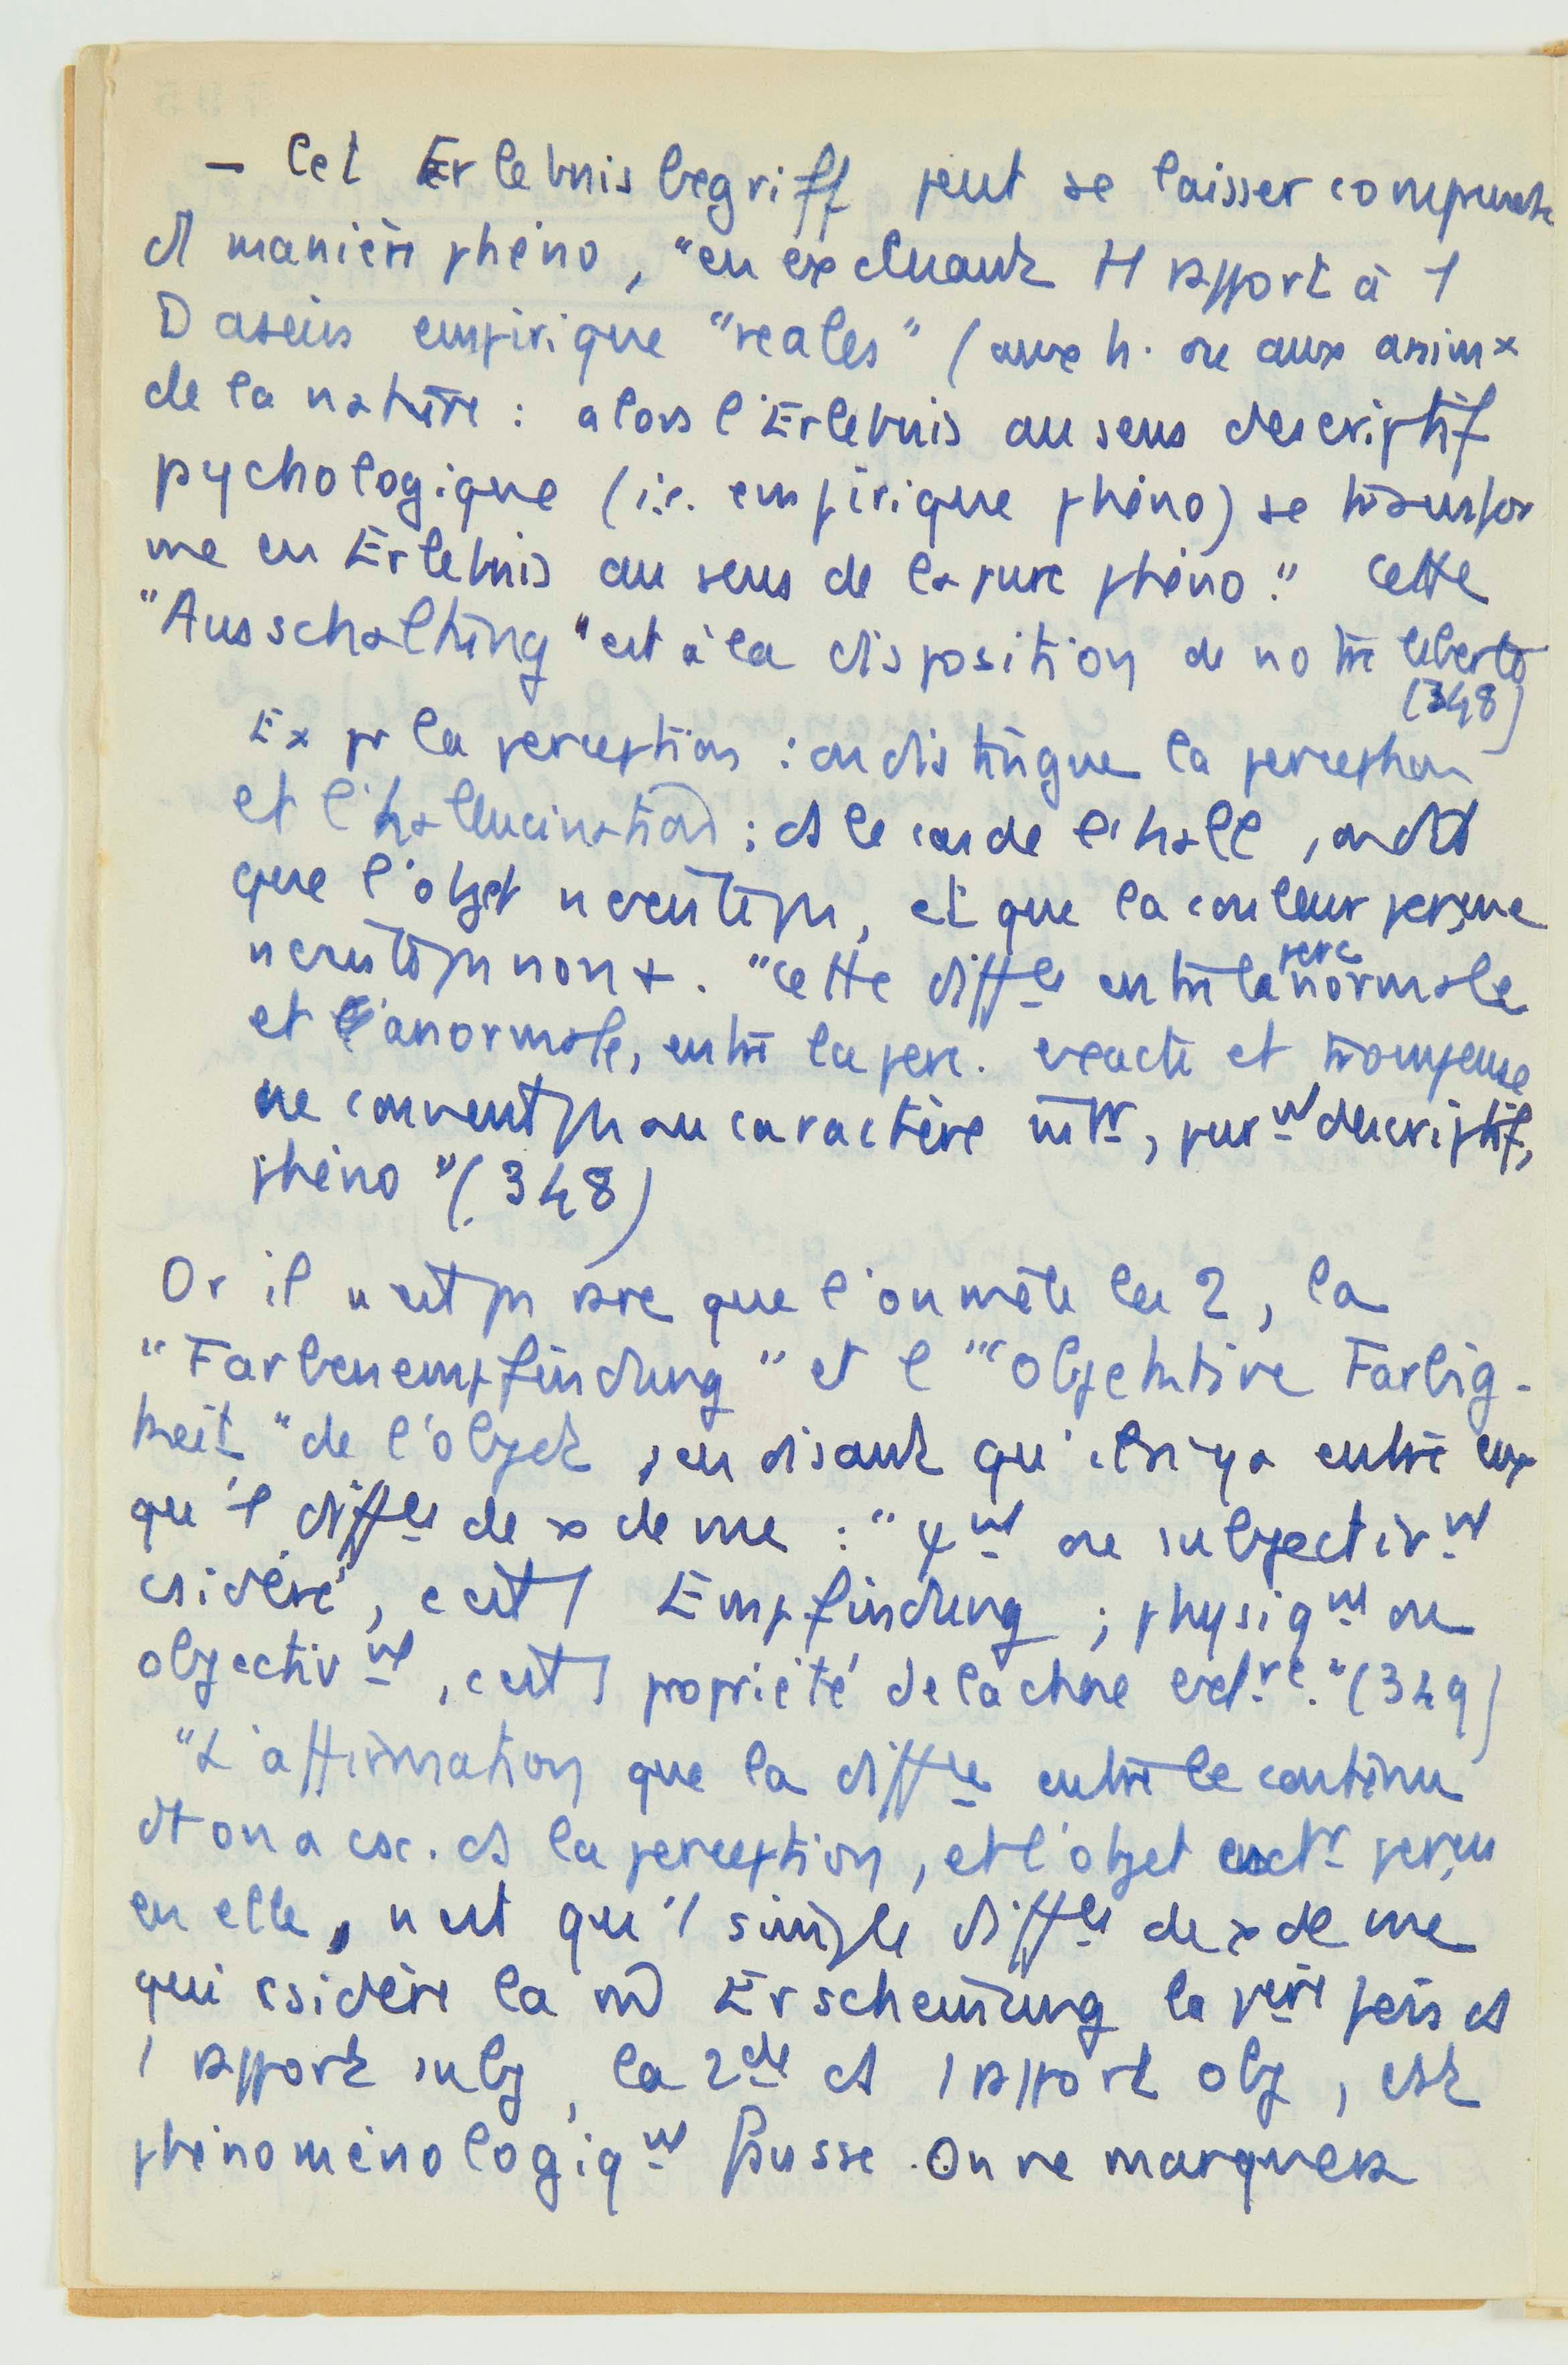 — Cet Erlebnisbegriff peut se laisser comprendre
ds manière phéno, "en excluant tt rapport à 1
Dasein empirique "reales" (aux h. ou aux animx
de la nature : alors l'Erlebnis au sens descriptif
pychologique (i.e. empirique phéno) se transfor
me en Erlebnis au sens de la pure phéno." Cette
"Ausschaltung" est à la disposition de notre liberté
(348)
Ex pr la perception : on distingue la perception
et l'hallucination ; ds le cas de l'hall, on dit
que l'objet n'existe ps, et que la couleur perçue
n'existe ps non +. "Cette diffce entre la perc normale
et l'anormale, entre la perc. exacte et trompeuse
ne convent ps au caractère intr, purmt descriptif,
phéno" (348)
Or il n'est ps rare que l'on mêle les 2, la
"Farbenempfindung" et l'"objektive Farbig-
keit" de l'objet, en disant qu'il n'y a entre eux
qu'1 diffce de x de vue : "ψmt ou subjectivmt
csidéré, c'est 1 Empfindung ; physiqmt ou
objectivmt, c'est 1 propriété de la chose extre." (349)
"L'affirmation que la diffce entre le contenu
dt on a csc. ds la perception, et l'objet extr perçu
en elle, n'est qu'1 simple diffce de x de vue
qui csidère la m Erscheinung la père fois ds
1 rapport subj, la 2de ds 1 rapport obj, est
phénoménologiqmt fausse. On remarquera